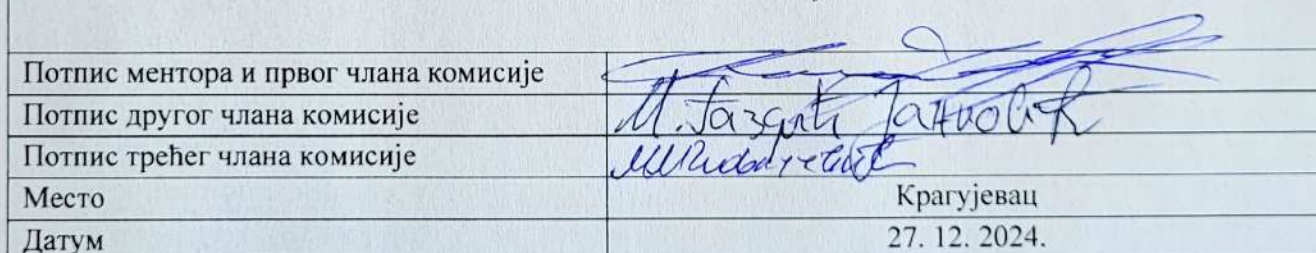 Потпис ментора и првог члана комисије
Потпис другог члана комисије М. Газдић Јанковић
Потпис трећег члана комисије
Место Крагујевац
Датум 27. 12. 2024.